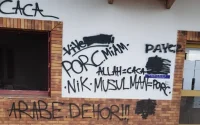 CACA
VIVE
PORC MIAM
ALLAH=CACA
NIK MUSULMAN=PORC
ARABE DEHOR!!!